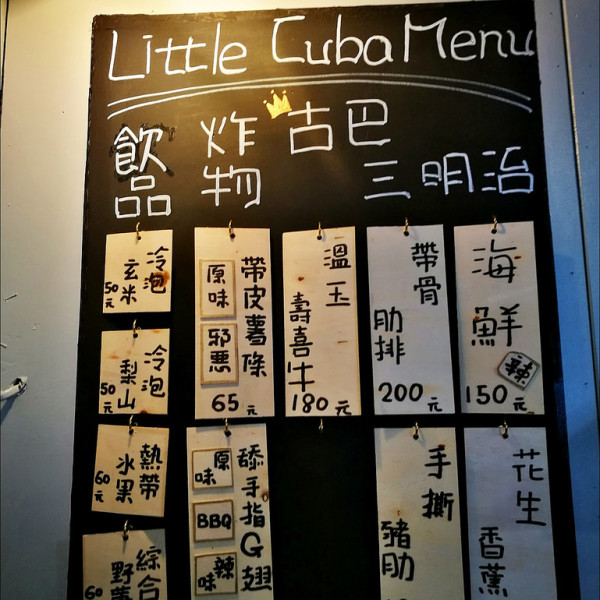 Little Cuba Menu
飲品
炸物
古巴
三明治
冷泡
玄米
50元
冷泡
梨山
50元
熱帶
水果
60元
綜合
野莓
60
帶皮薯條
原味
邪惡
65元
舔手指G翅
原味
BBQ
辣味
溫玉
壽喜牛
180元
帶骨
肋排
200元
手撕
豬肋
海鮮
辣
150元
花生
香蕉